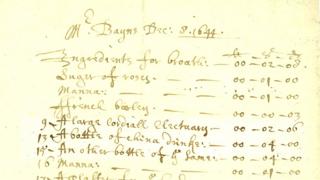 Mr Bayns Dec: 8. 1644.
li s d
Ingredients for broath: — 00 — 02 — 08
Suger of roses. — — 00 — 01 — 00
Manna: — — 00 — 01 — 00
ffrench barley — — 00 — 00 — 03
9 — A large cordiall Electuary — 00 — 02 — 06
A bottle of china drinke: — 00 — 04 — 00
15 — An other bottle of ye same: — 00 — 04 — 00
16 Manna: — — 00 — 01 — 00